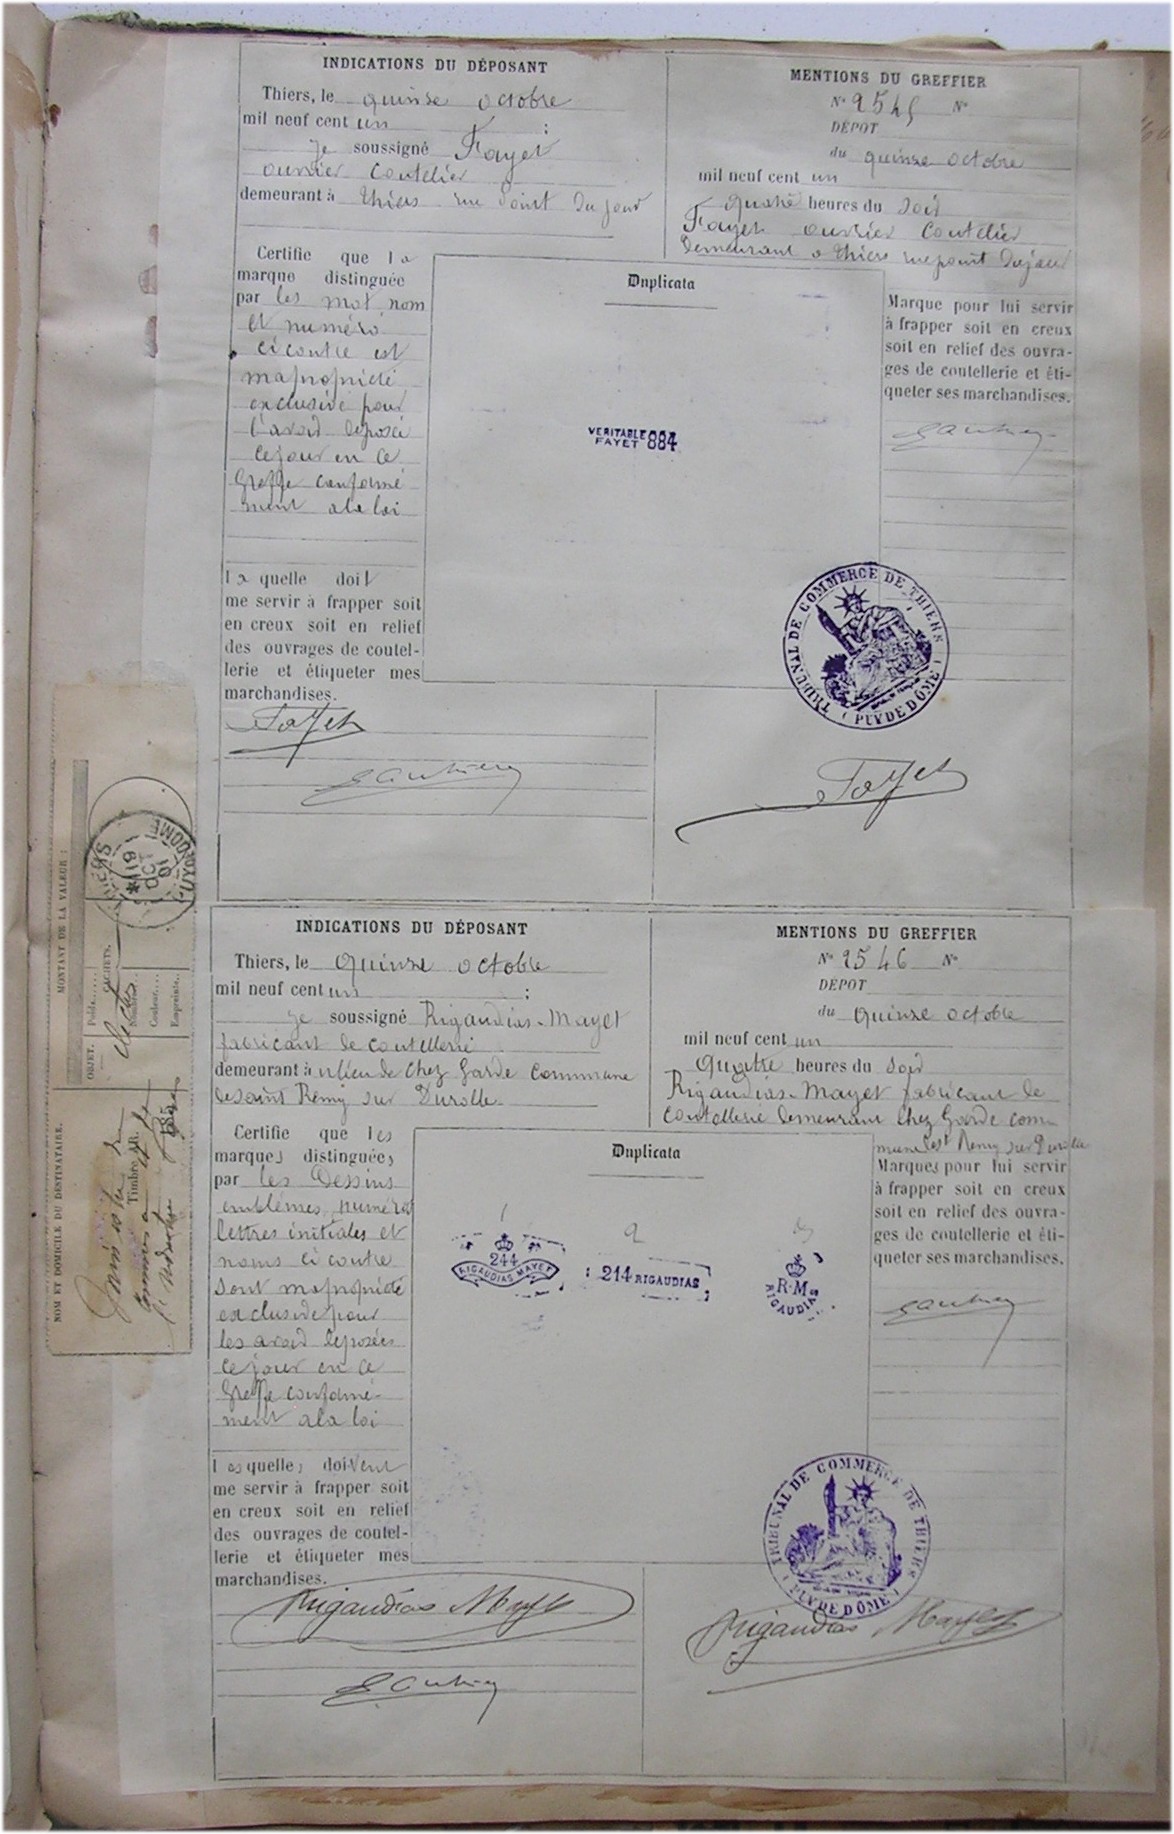 INDICATIONS DU DÉPOSANT
Thiers, le quinze octobre
mil neuf cent un ;
je soussigné Fayet
ouvrier coutelier
demeurant à Thiers rue Point du jour
Certifie que la
marque distinguée
par les mot, nom
et numéro
ci contre est
ma propriété
exclusive pour
l'avoir déposée
ce jour en ce
Greffe conformé
ment a la loi
laquelle doit
me servir à frapper soit
en creux soit en relief
des ouvrages de coutel-
lerie et étiqueter mes
marchandises.
Fayet
Gauthier
MENTIONS DU GREFFIER
N° 2545 N°
DÉPOT
du quinze octobre
mil neuf cent un
quatre heures du soir
Fayet ouvrier coutelier
demeurant a Thiers rue point du jour
Duplicata
VERITABLE
FAYET 884
Marque pour lui servir
à frapper soit en creux
soit en relief des ouvra-
ges de coutellerie et éti-
queter ses marchandises.
Gauthier
TRIBUNAL DE COMMERCE DE THIERS
(PUY DE DÔME)
Fayet
MONTANT DE LA VALEUR :
OBJET.
Poids
CACHETS.
Nombre
Couleur
Empreinte
NOM ET DOMICILE DU DESTINATAIRE.
Timbre
PUY-DE-DOME
INDICATIONS DU DÉPOSANT
Thiers, le quinze octobre
mil neuf cent un ;
je soussigné Rigaudias-Mayet
fabricant de coutellerie
demeurant à u lieu de chez Garde commune
de saint Rémy sur Durolle
Certifie que les
marques distinguées
par les Dessins
emblémes, numéros
lettres initiales et
noms ci contre
sont ma propriété
exclusive pour
les avoir déposées
ce jour en ce
Greffe conformé-
ment a la loi
lesquelles doivent
me servir à frapper soit
en creux soit en relief
des ouvrages de coutel-
lerie et étiqueter mes
marchandises.
Rigaudias Mayet
Gauthier
MENTIONS DU GREFFIER
N° 2546 N°
DÉPOT
du quinze octobre
mil neuf cent un
quatre heures du soir
Rigaudias-Mayet fabricant de
coutellerie demeurant chez Garde com
mune de st Remy sur Durolle
Duplicata
1
2
3
244
RIGAUDIAS MAYET
214 RIGAUDIAS
R·M
RIGAUDIAS
Marques pour lui servir
à frapper soit en creux
soit en relief des ouvra-
ges de coutellerie et éti-
queter ses marchandises.
Gauthier
TRIBUNAL DE COMMERCE DE THIERS
(PUY DE DÔME)
Rigaudias Mayet